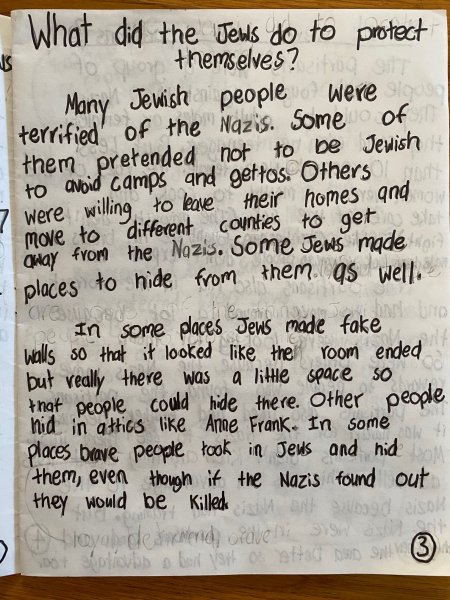 What did the Jews do to protect
themselves?
Many Jewish people were
terrified of the Nazis. Some of
them pretended not to be Jewish
to avoid camps and gettos. Others
were willing to leave their homes and
move to different counties to get
away from the Nazis. Some Jews made
places to hide from them as well.
In some places Jews made fake
walls so that it looked like the room ended
but really there was a little space so
that people could hide there. Other people
hid in attics like Anne Frank. In some
places brave people took in Jews and hid
them, even though if the Nazis found out
they would be killed.
3